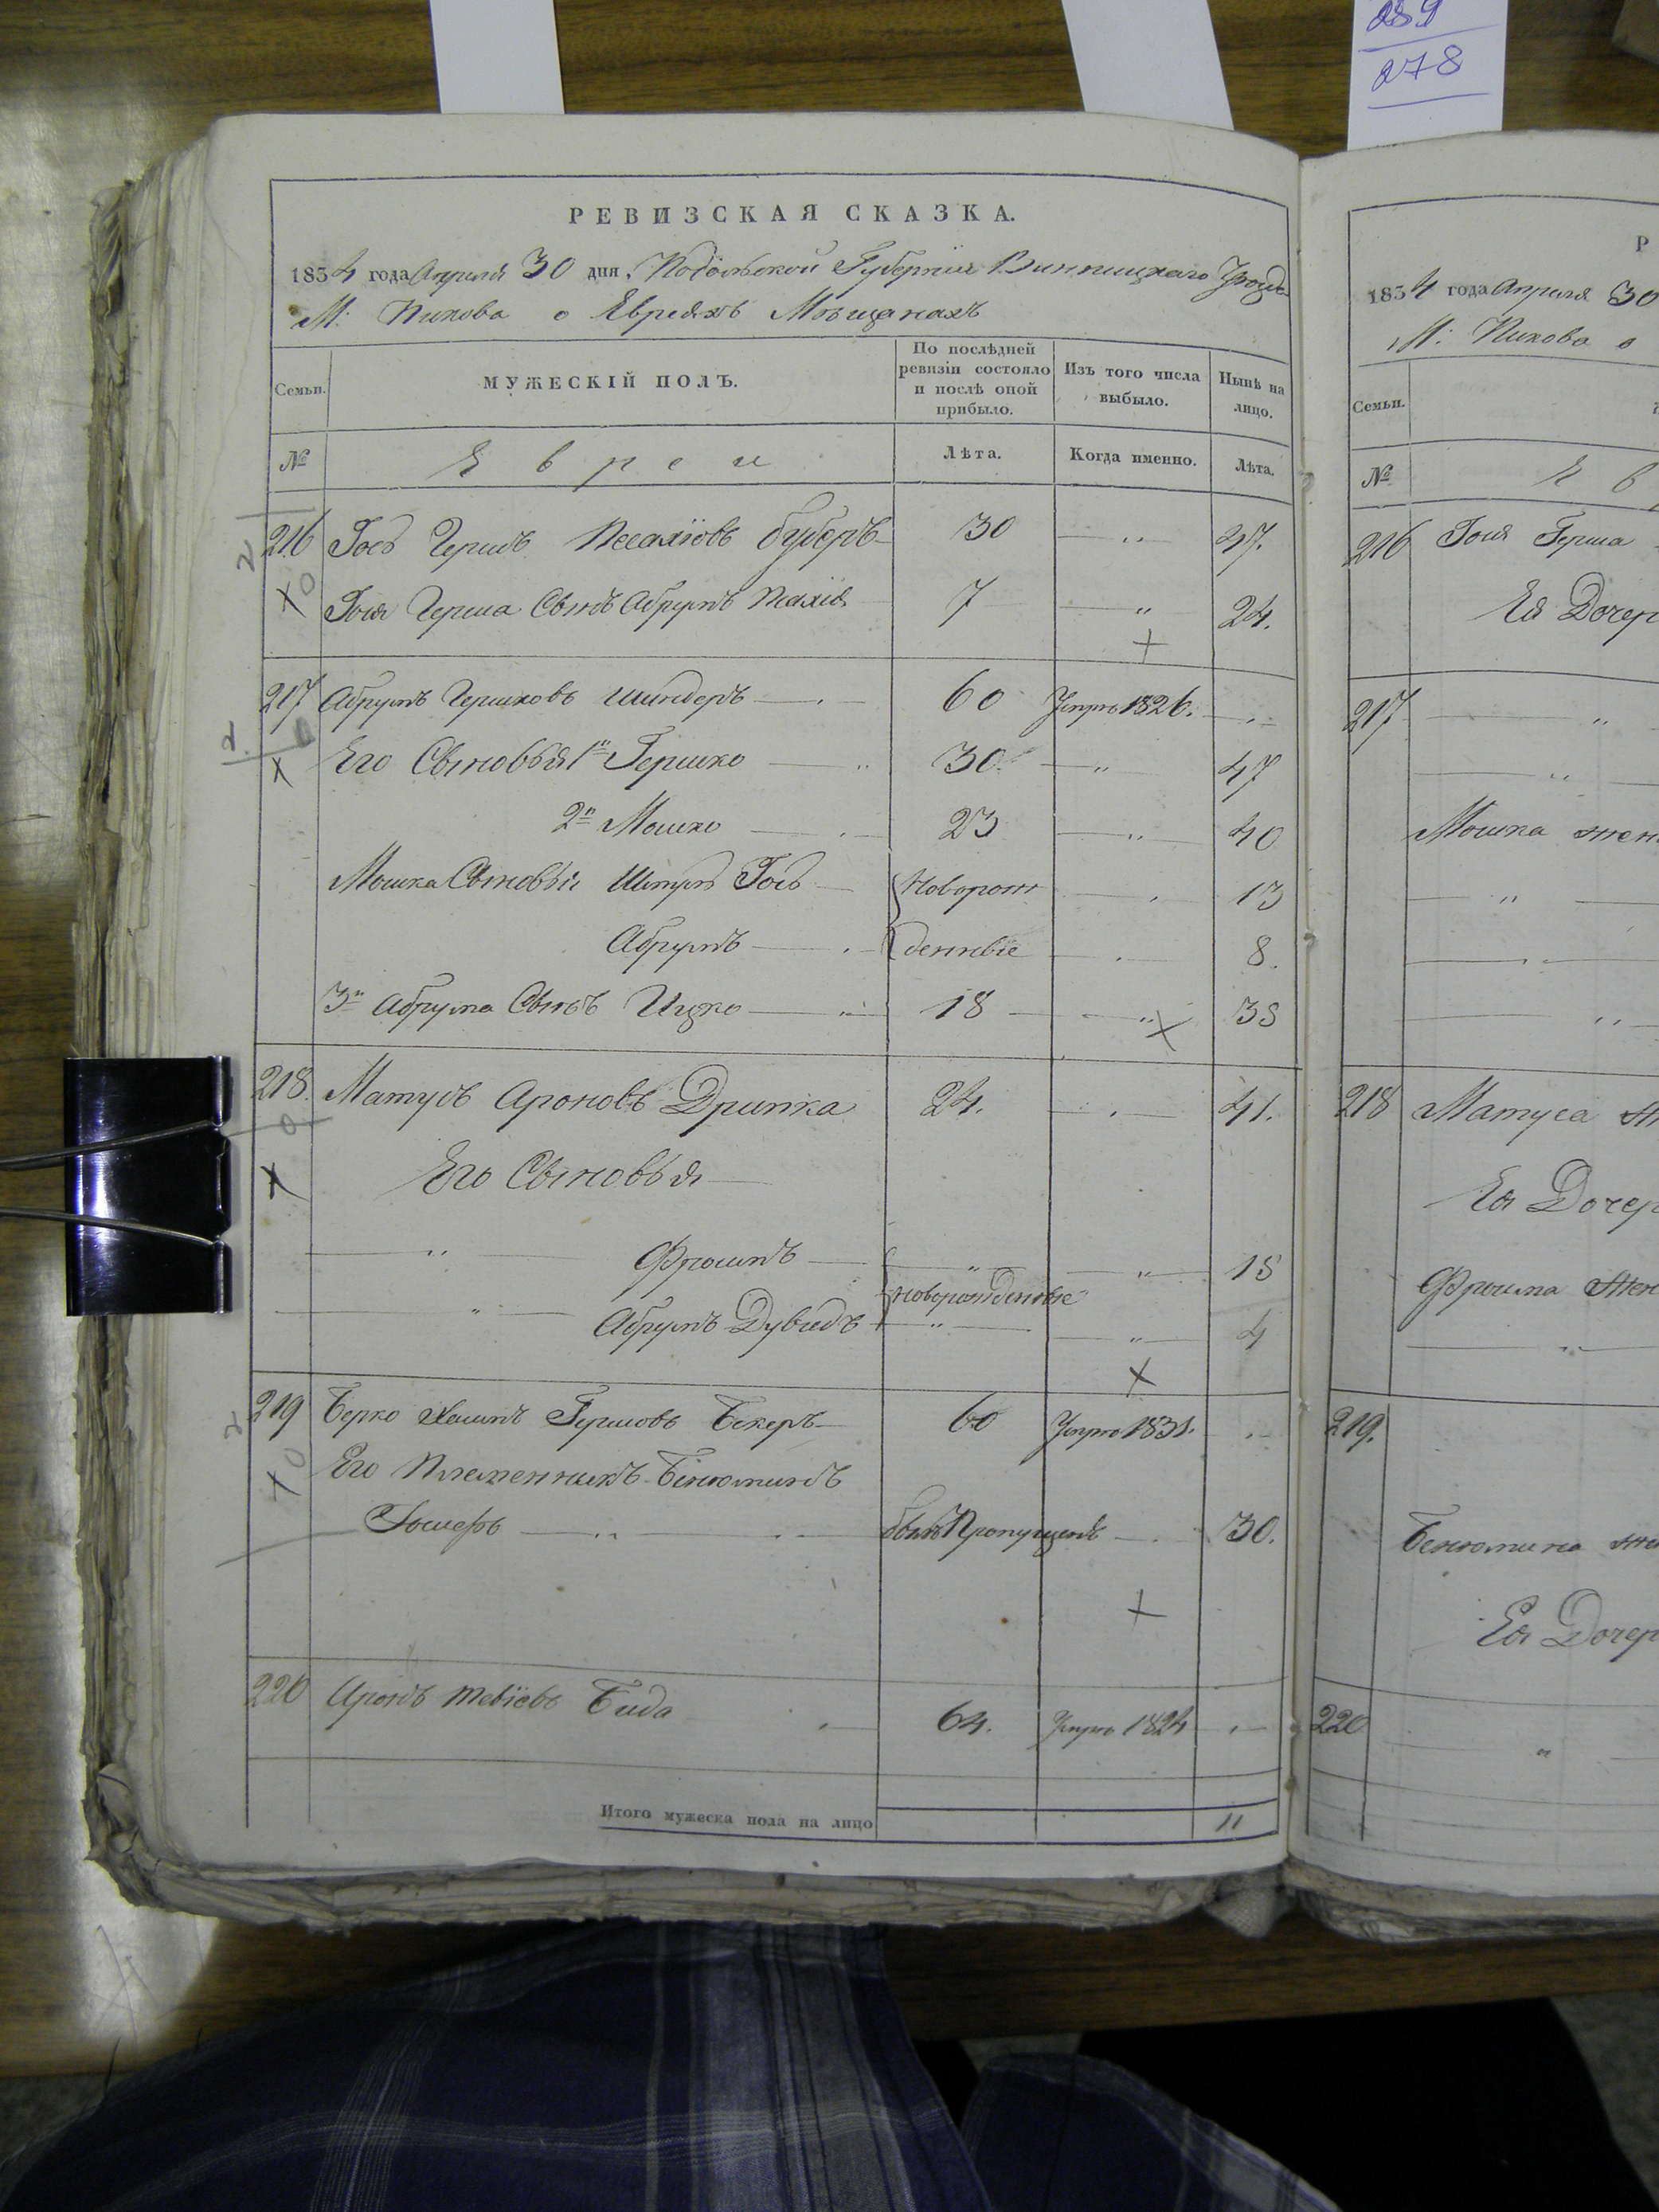 289
278
РЕВИЗСКАЯ СКАЗКА.
1834 года Апреля 30 дня, Подольской Губернии Винницкаго Уезда
М: Пикова о Евреяхъ Мещанахъ
Семьи.
МУЖЕСКІЙ ПОЛЪ.
По послѣдней ревизіи состояло и послѣ оной прибыло.
Изъ того числа выбыло.
Нынѣ на лицо.
№
Евреи
Лѣта.
Когда именно.
Лѣта.
216 Гось Гершъ 30 " 47.
Гося Герша Сынъ Абрумъ 7 " 24.
217 Абрумъ Гершковъ Шиндеръ 60 Умре 1826.
Его Сыновья 1й Гершко 30 " 47
2й Мошко 23 " 40
Мошка Сыновья Гось Новорож 13
Абрумъ денные 8.
3й Абрума Сынъ Ицко 18 " 35
218. Матусъ Ароновъ Дрипка 24. 41.
Его Сыновья
" Фроимъ " " 18
новорожденные
" Абрумъ Дувидъ " " 4
219 Берко Гершовъ Бекеръ 60 Умре 1831.
Его Племенникъ Бенюминъ
былъ Пропущенъ 30.
220 Аронъ Тевіевъ Бида 64. Умре 1824
Итого мужеска пола на лицо 11
Р
1834 года Апреля 30
М: Пикова о
Семьи.
№
Е в
216 Гося Герша
Ея Дочер
217 "
"
Мошка жен
"
"
218 Матуса
Ея Дочер
Фроима Жен
219.
Бенюмина
Ея Дочер
220
"